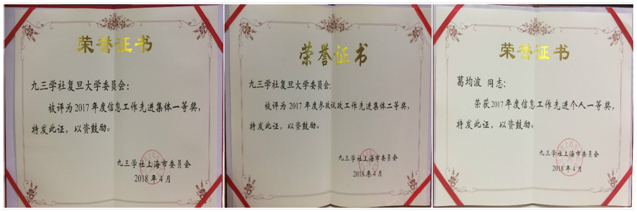 荣誉证书
九三学社复旦大学委员会:
被评为2017年度信息工作先进集体一等奖,
特发此证,以资鼓励。
九三学社上海市委员会
2018年4月
荣誉证书
九三学社复旦大学委员会:
被评为2017年度参政议政工作先进集体二等奖,
特发此证,以资鼓励。
九三学社上海市委员会
2018年4月
荣誉证书
葛均波 同志:
荣获2017年度信息工作先进个人一等奖,
特发此证,以资鼓励。
九三学社上海市委员会
2018年4月